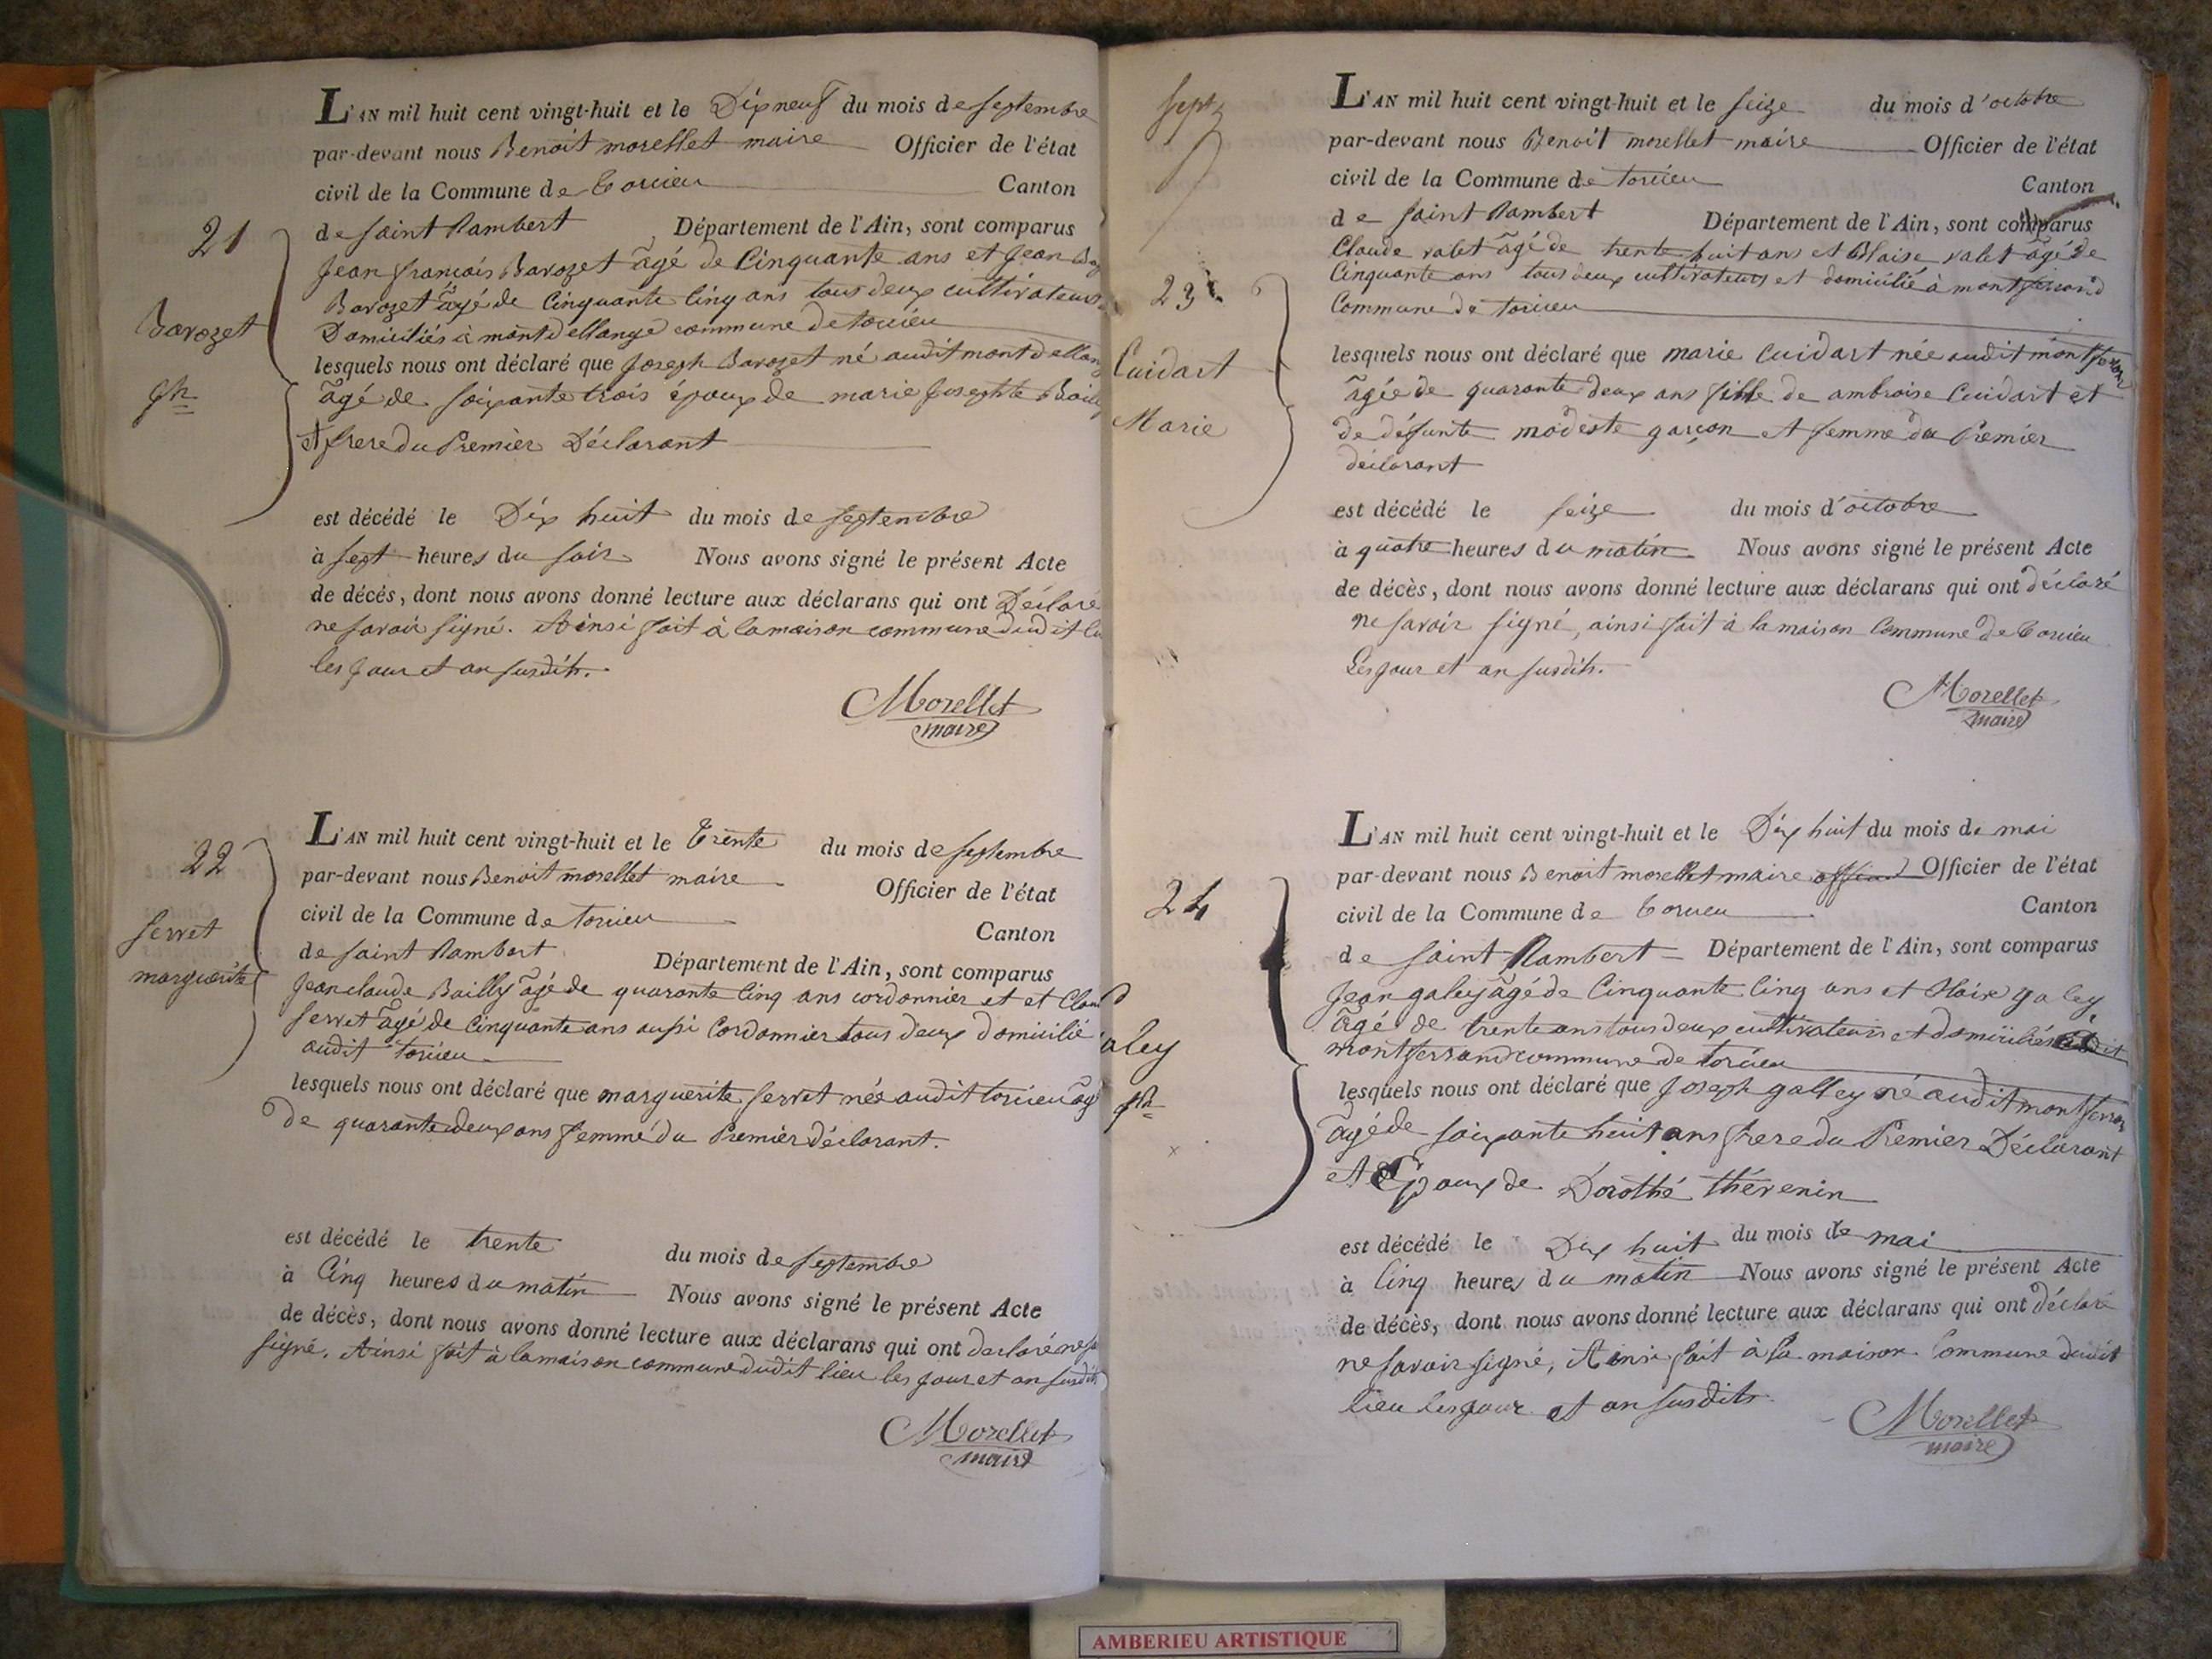 L'AN mil huit cent vingt-huit et le Dix neuf du mois de septembre
par-devant nous Benoit morellet maire Officier de l'état
civil de la Commune de torcieu Canton
de saint Rambert Département de l'Ain, sont comparus
21
Jean francois Barozet âgé de Cinquante ans et Jean
Barozet âgé de Cinquante Cinq ans tous deux cultivateurs
Barozet
Domiciliés à montdellange commune de torcieu
lesquels nous ont déclaré que Joseph Barozet né audit montdellang
jph
âgé de soixante trois époux de marie Josephte Bailly
et frere du Premier Déclarant
est décédé le Dix huit du mois de septembre
à sept heures du soir Nous avons signé le présent Acte
de décés, dont nous avons donné lecture aux déclarans qui ont Déclaré
ne savoir signé. Ainsi fait à la maison commune dudit
les jour et an susdits.
Morellet
maire
L'AN mil huit cent vingt-huit et le Trente du mois de septembre
22
par-devant nous Benoit morellet maire Officier de l'état
civil de la Commune de torcieu Canton
serret
de saint Rambert Département de l'Ain, sont comparus
marguerite
Jean claude Bailly âgé de quarante Cinq ans cordonnier et et Clau
serret âgé de Cinquante ans aussi Cordonnier tous deux domicilié
audit torcieu
lesquels nous ont déclaré que marguerite serret née audit torcieu âg
de quarante deux ans femme du Premier déclarant.
est décédé le trente du mois de septembre
à Cinq heures du matin Nous avons signé le présent Acte
de décès, dont nous avons donné lecture aux déclarans qui ont declaré ne
signé. Ainsi fait à la maison commune dudit lieu les jour et an susdits
Morellet
maire
sept
L'AN mil huit cent vingt-huit et le seize du mois d'octobre
par-devant nous Benoit morellet maire Officier de l'état
civil de la Commune de torcieu Canton
de saint Rambert Département de l'Ain, sont comparus
Claude valet âgé de trente huit ans et Blaise valet âgé de
23
Cinquante ans tous deux cultivateurs et domicilié à montferrand
Commune de torcieu
Cuidart
lesquels nous ont déclaré que marie Cuidart née audit montferran
âgée de quarante deux ans fille de ambroise Cuidart et
Marie
de défunte modeste garçon et femme du Premier
déclarant
est décédé le seize du mois d'octobre
à quatre heures du matin Nous avons signé le présent Acte
de décès, dont nous avons donné lecture aux déclarans qui ont déclaré
ne savoir signé, ainsi fait à la maison Commune de torcieu
Les jour et an susdits.
Morellet
maire
L'AN mil huit cent vingt-huit et le Dix huit du mois de mai
par-devant nous Benoit morellet maire Officier de l'état
24
civil de la Commune de torcieu Canton
de saint Rambert Département de l'Ain, sont comparus
Jean galey âgé de Cinquante Cinq ans et galey
âgé de trente ans tous deux cultivateurs et domiciliés
aley
montferrand commune de torcieu
lesquels nous ont déclaré que Joseph galley né audit montferran
jph
âgé de soixante huit ans frere du Premier Déclarant
et Epoux de Dorothé thévenin
est décédé le Dix huit du mois de mai
à Cinq heures du matin Nous avons signé le présent Acte
de décès, dont nous avons donné lecture aux déclarans qui ont déclaré
ne savoir signé, Ainsi fait à la maison Commune dudit
lieu les jour et an susdits.
Morellet
maire
AMBERIEU ARTISTIQUE